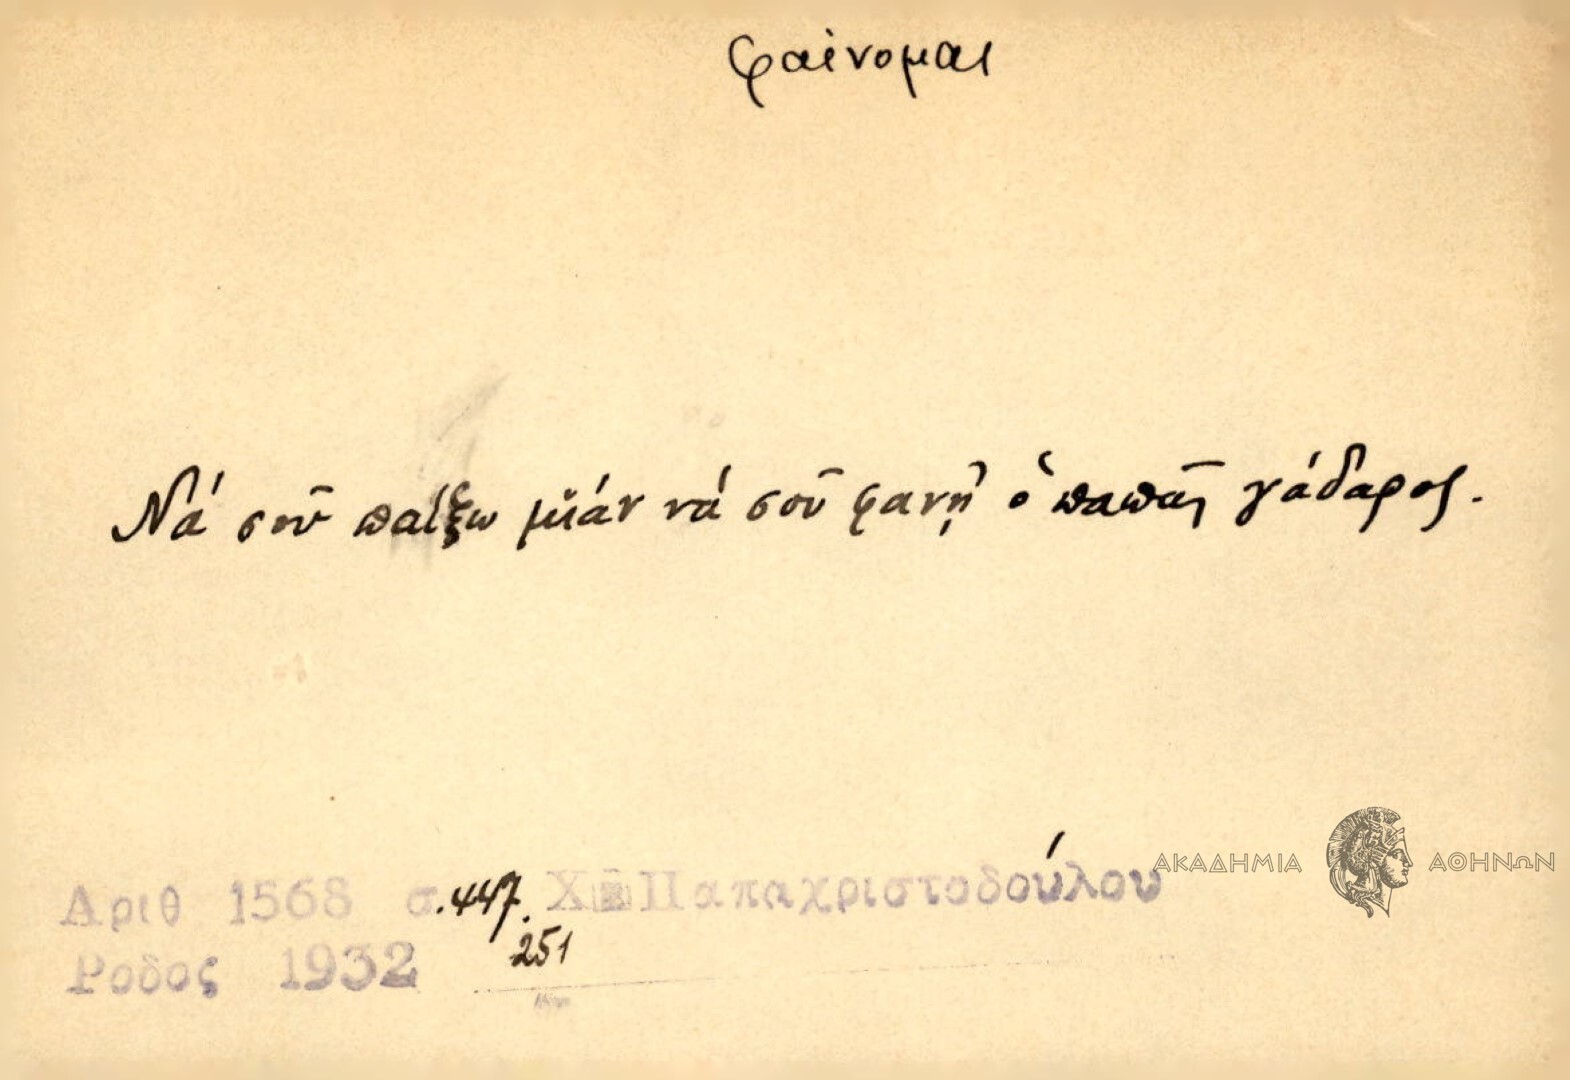 φαίνομαι
Νά σοῦ παίξω μιάν νά σοῦ φανῇ ὁ παπᾶς γάδαρος.
Αριθ 1568 σ. 447. Χ Παπαχριστοδούλου
251
Ροδος 1932
ΑΚΑΔΗΜΙΑ ΑΘΗΝΩΝ